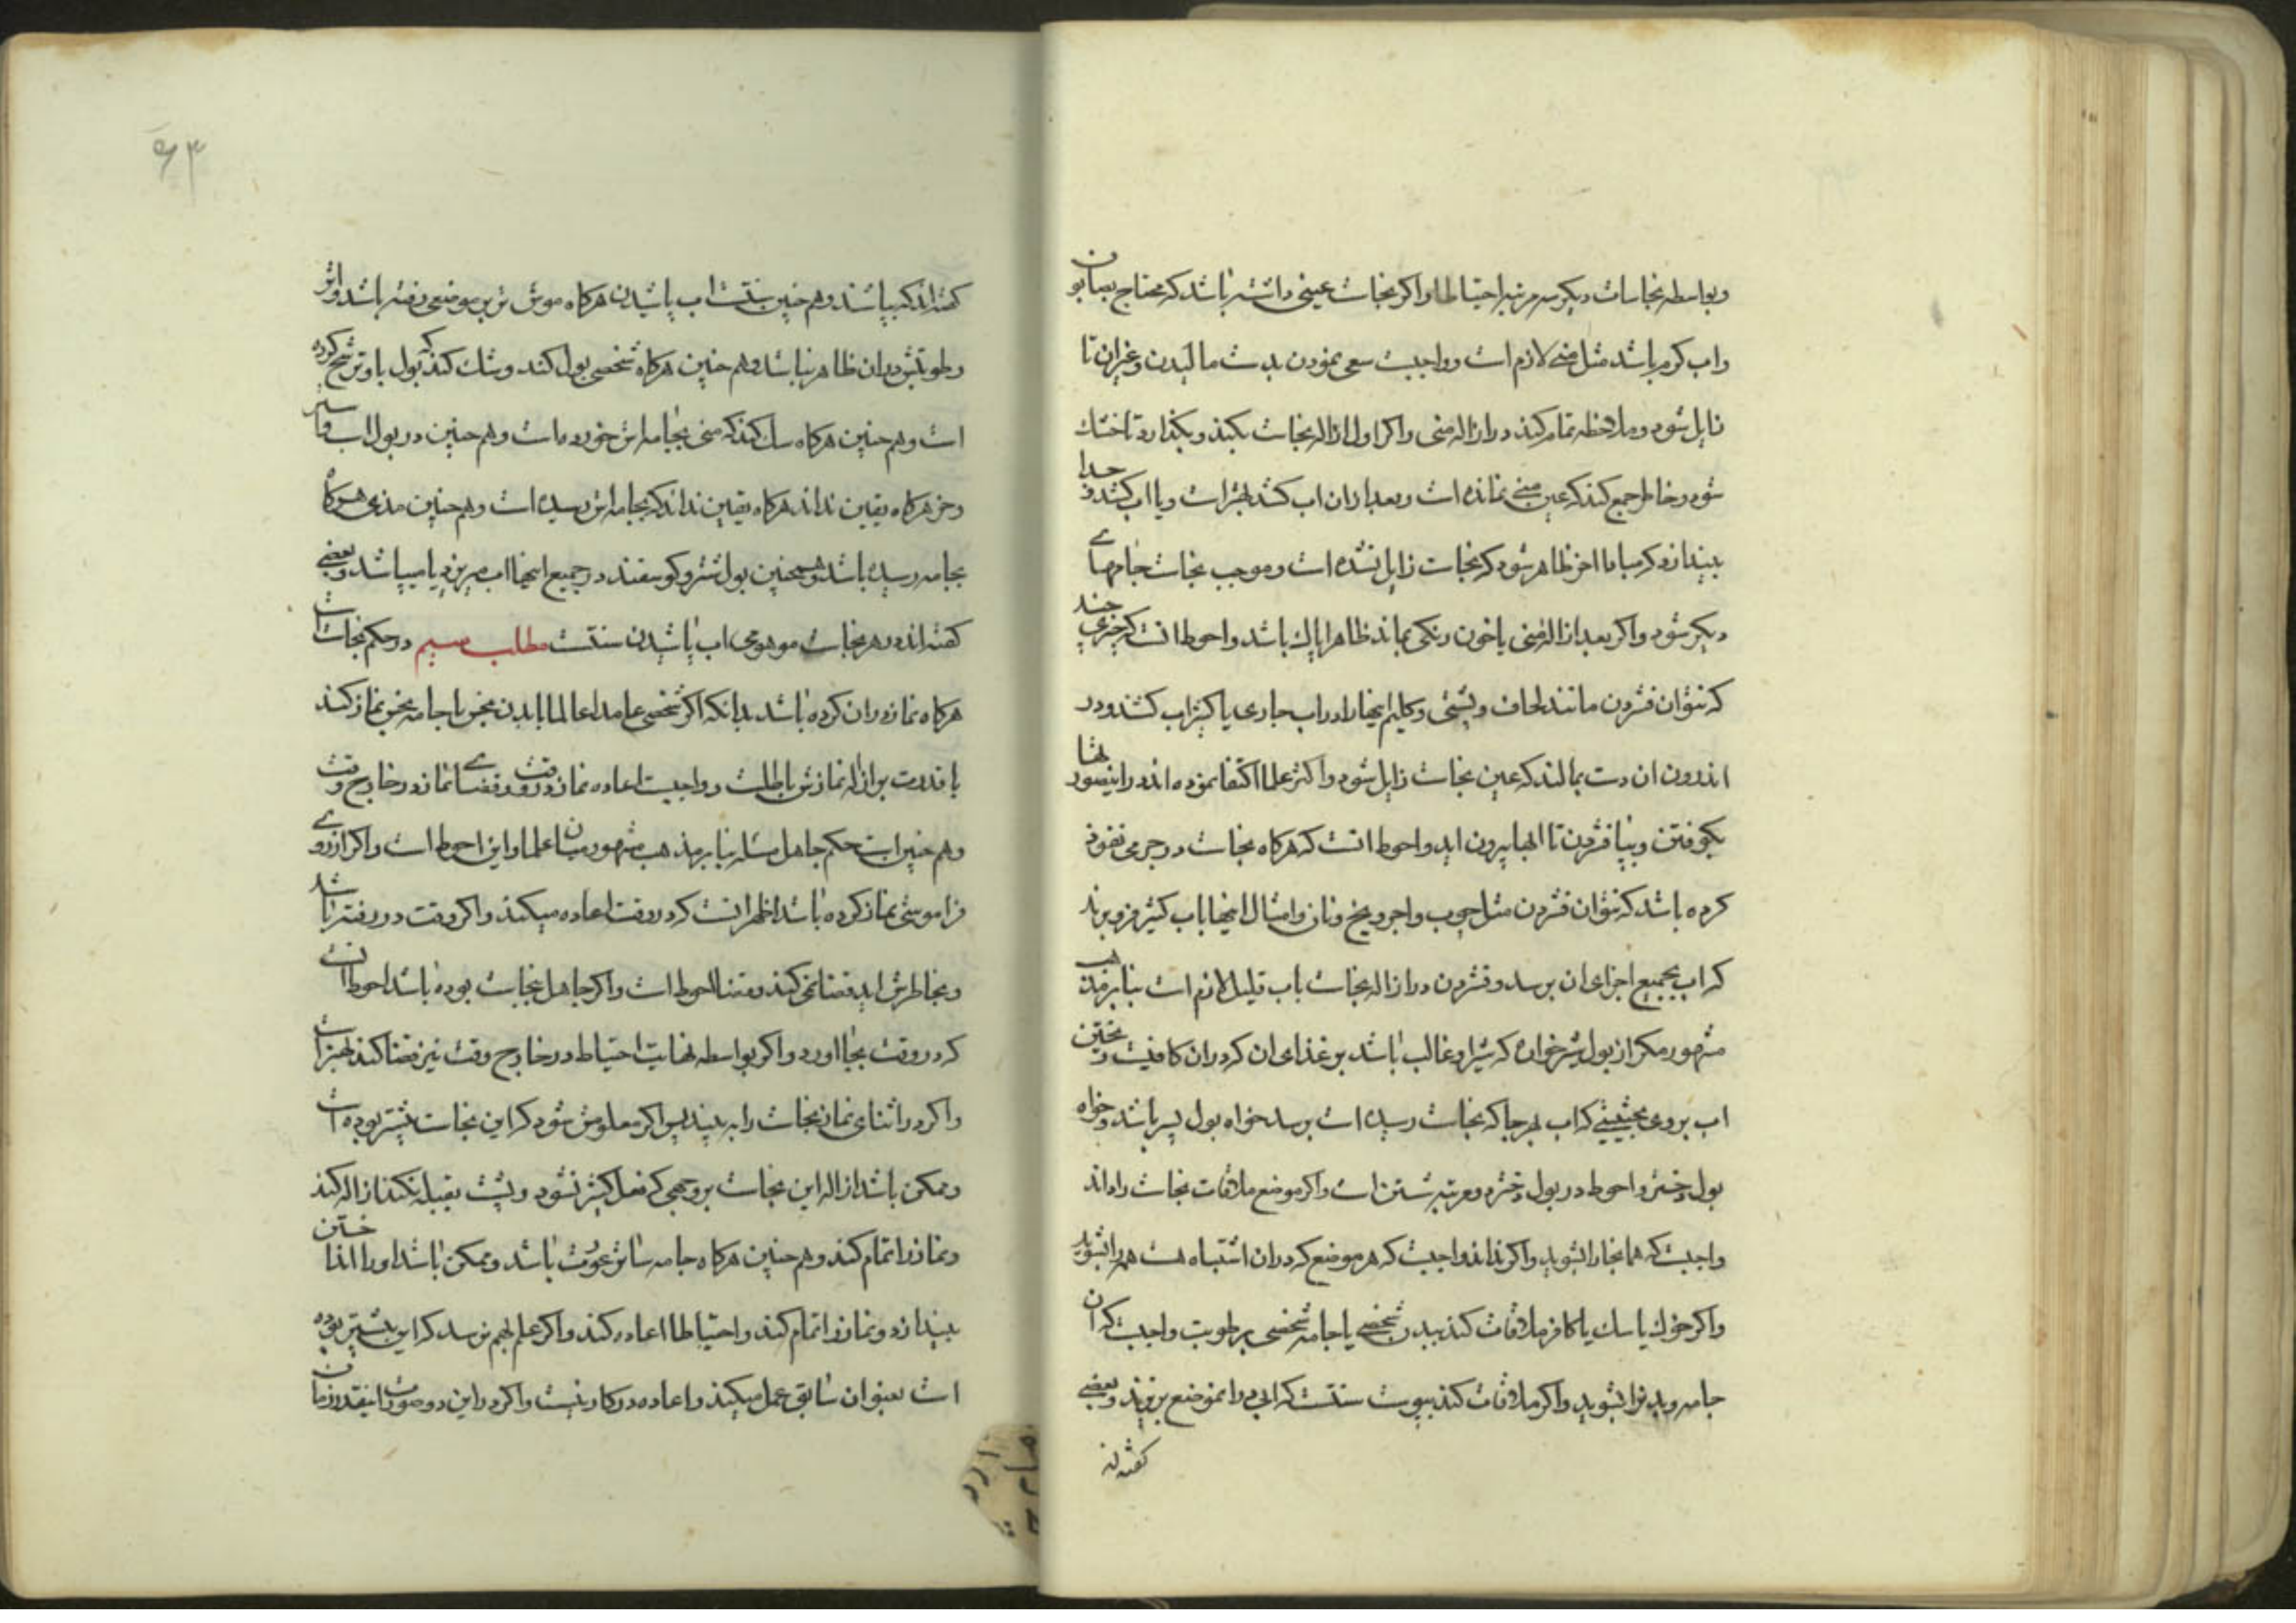 وبواسطه نجاسات دیکر سه مرتبه احتیاطا واکر نجاست عینی داشته باشد که محتاج بصابون
واب کرم باشد مثل منی لازم است وواجبست سعی نمودن بدست مالیدن وغیران تا
زایل شود وملاحظه تمام کند در ازاله منی واکر اول ازاله نجاست بکند وبکذارد تا خشک
شود وخاطر جمع کند که عین منی نمانده است وبعد ازان اب کشد بهتر است ویا اب کشد وجدا
بیندازد که مبادا اخر ظاهر شود که نجاست زایل نشده است وموجب نجاست جامهای
دیکر شود واکر بعد از ازاله منی یا خون رنکی بماند ظاهرا پاک باشد واحوط انست که چیزی چند
که نتوان فشردن مانند لحاف وپشتی وکلیم اینها را در اب جاری یا کثیر اب کشند ودر
اندرون ان دست بمالند که عین نجاست زایل شود واکثر علما اکتفا نموده اند در اینصورتها
بکوفتن وبپا فشردن تا ابها بیرون اید واحوط انست که هرکاه نجاست در جرمی نفوذ
کرده باشد که نتوان فشردن مثل چوب واجر ویخ ونان وامثال اینها باب کثیر فرو برند
که اب بجمیع اجزای ان برسد وفشردن در ازاله نجاست باب قلیل لازم است بنابر مذهب
مشهور مکر از بول شیرخواره که شیر او غالب باشد بر غذای ان که دران کافیست ریختن
اب بروی بحیثیتی که اب بهر جا که نجاست رسیده است برسد خواه بول پسر باشد وخواه
بول دختر واحوط در بول دختر دو مرتبه شستن است واکر موضع ملاقات نجاست را داند
واجبست که همانجا را بشوید واکر نداند واجبست که هر موضع که دران اشتباه هست همه را بشوید
واکر خوک یا سک یا کافر ملاقات کند ببدن شخصی یا جامه شخصی برطوبت واجبست که ان
جامه وبدن را بشوید واکر ملاقات کند بیبوست سنتست که ابی بران موضع بریزند وبعضی
کفته اند
۶۳
کفته اند که بپاشند وهم چنین سنتست اب پاشیدن هرکاه موش تر بر موضعی رفته باشد واثر
رطوبتش دران ظاهر نباشد وهم چنین هرکاه شخصی بول کند وشک کند که بول باو ترشح کرده
است وهم چنین هرکاه شک کند که منی بجامه اش خورده است وهم چنین در بول اسب واستر
وخر هرکاه یقین نداند هرکاه یقین نداند که بجامه اش رسیده است وهم چنین مذی هرکاه
بجامه رسیده باشد وهمچنین بول شتر وکوسفند در جمیع اینها اب میریزد یا میپاشد وبعضی
کفته اند در هر نجاست موهومی اب پاشیدن سنتست مطلب سیم در حکم نجاساتست
هرکاه نماز دران کرده باشد بدانکه اکر شخصی عامدا عالما با بدن نجس یا جامه نجس نماز کند
با قدرت بر ازاله نمازش باطلست وواجبست اعاده نماز در وقت وقضای نماز در خارج وقت
وهم چنین است حکم جاهل مسئله بنابر مذهب مشهور میان علما واین احوط است واکر از روی
فراموشی نماز کرده باشد اظهر انست که در وقت اعاده میکند واکر وقت در رفته باشد
وبخاطرش اید قضا نمی کند وقضا احوط است واکر جاهل نجاست بوده باشد احوط انست
که در وقت بجا اورد واکر بواسطه نهایت احتیاط در خارج وقت نیز قضا کند بهتر است
واکر در اثنای نماز نجاست را به بیند پس اکر معلومش شود که این نجاست پیشتر بوده است
وممکن باشد ازاله این نجاست بروجهی که فعل کثیر نشود وپشت بقبله نکند ازاله کند
ونماز را تمام کند وهم چنین هرکاه جامه ساتر عورت باشد وممکن باشد او را انداختن
بیندازد ونماز را تمام کند واحتیاطا اعاده کند واکر علم بهم نرسد که این پیشتر بوده
است بعنوان سابق عمل میکند واعاده در کار نیست واکر در این دو صورت اینقدر زمان